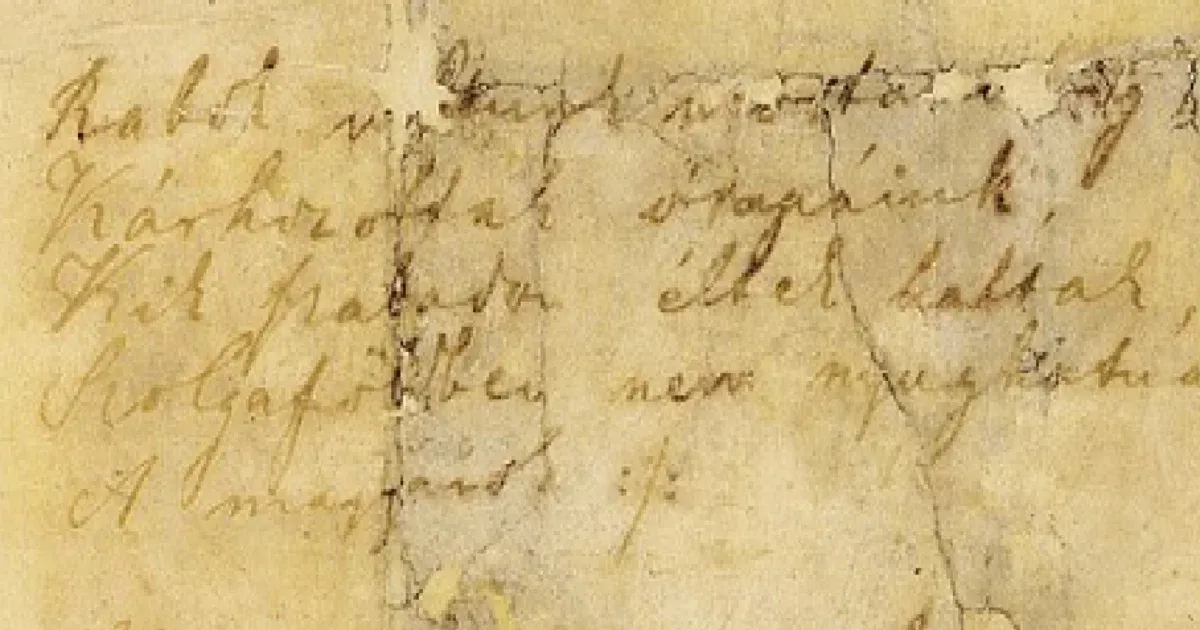 Rabok voltunk mostanáig
Kárhozottak ősapáink,
Kik szabadon éltek haltak,
Szolgaföldben nem nyughatna
A magyarok :/: